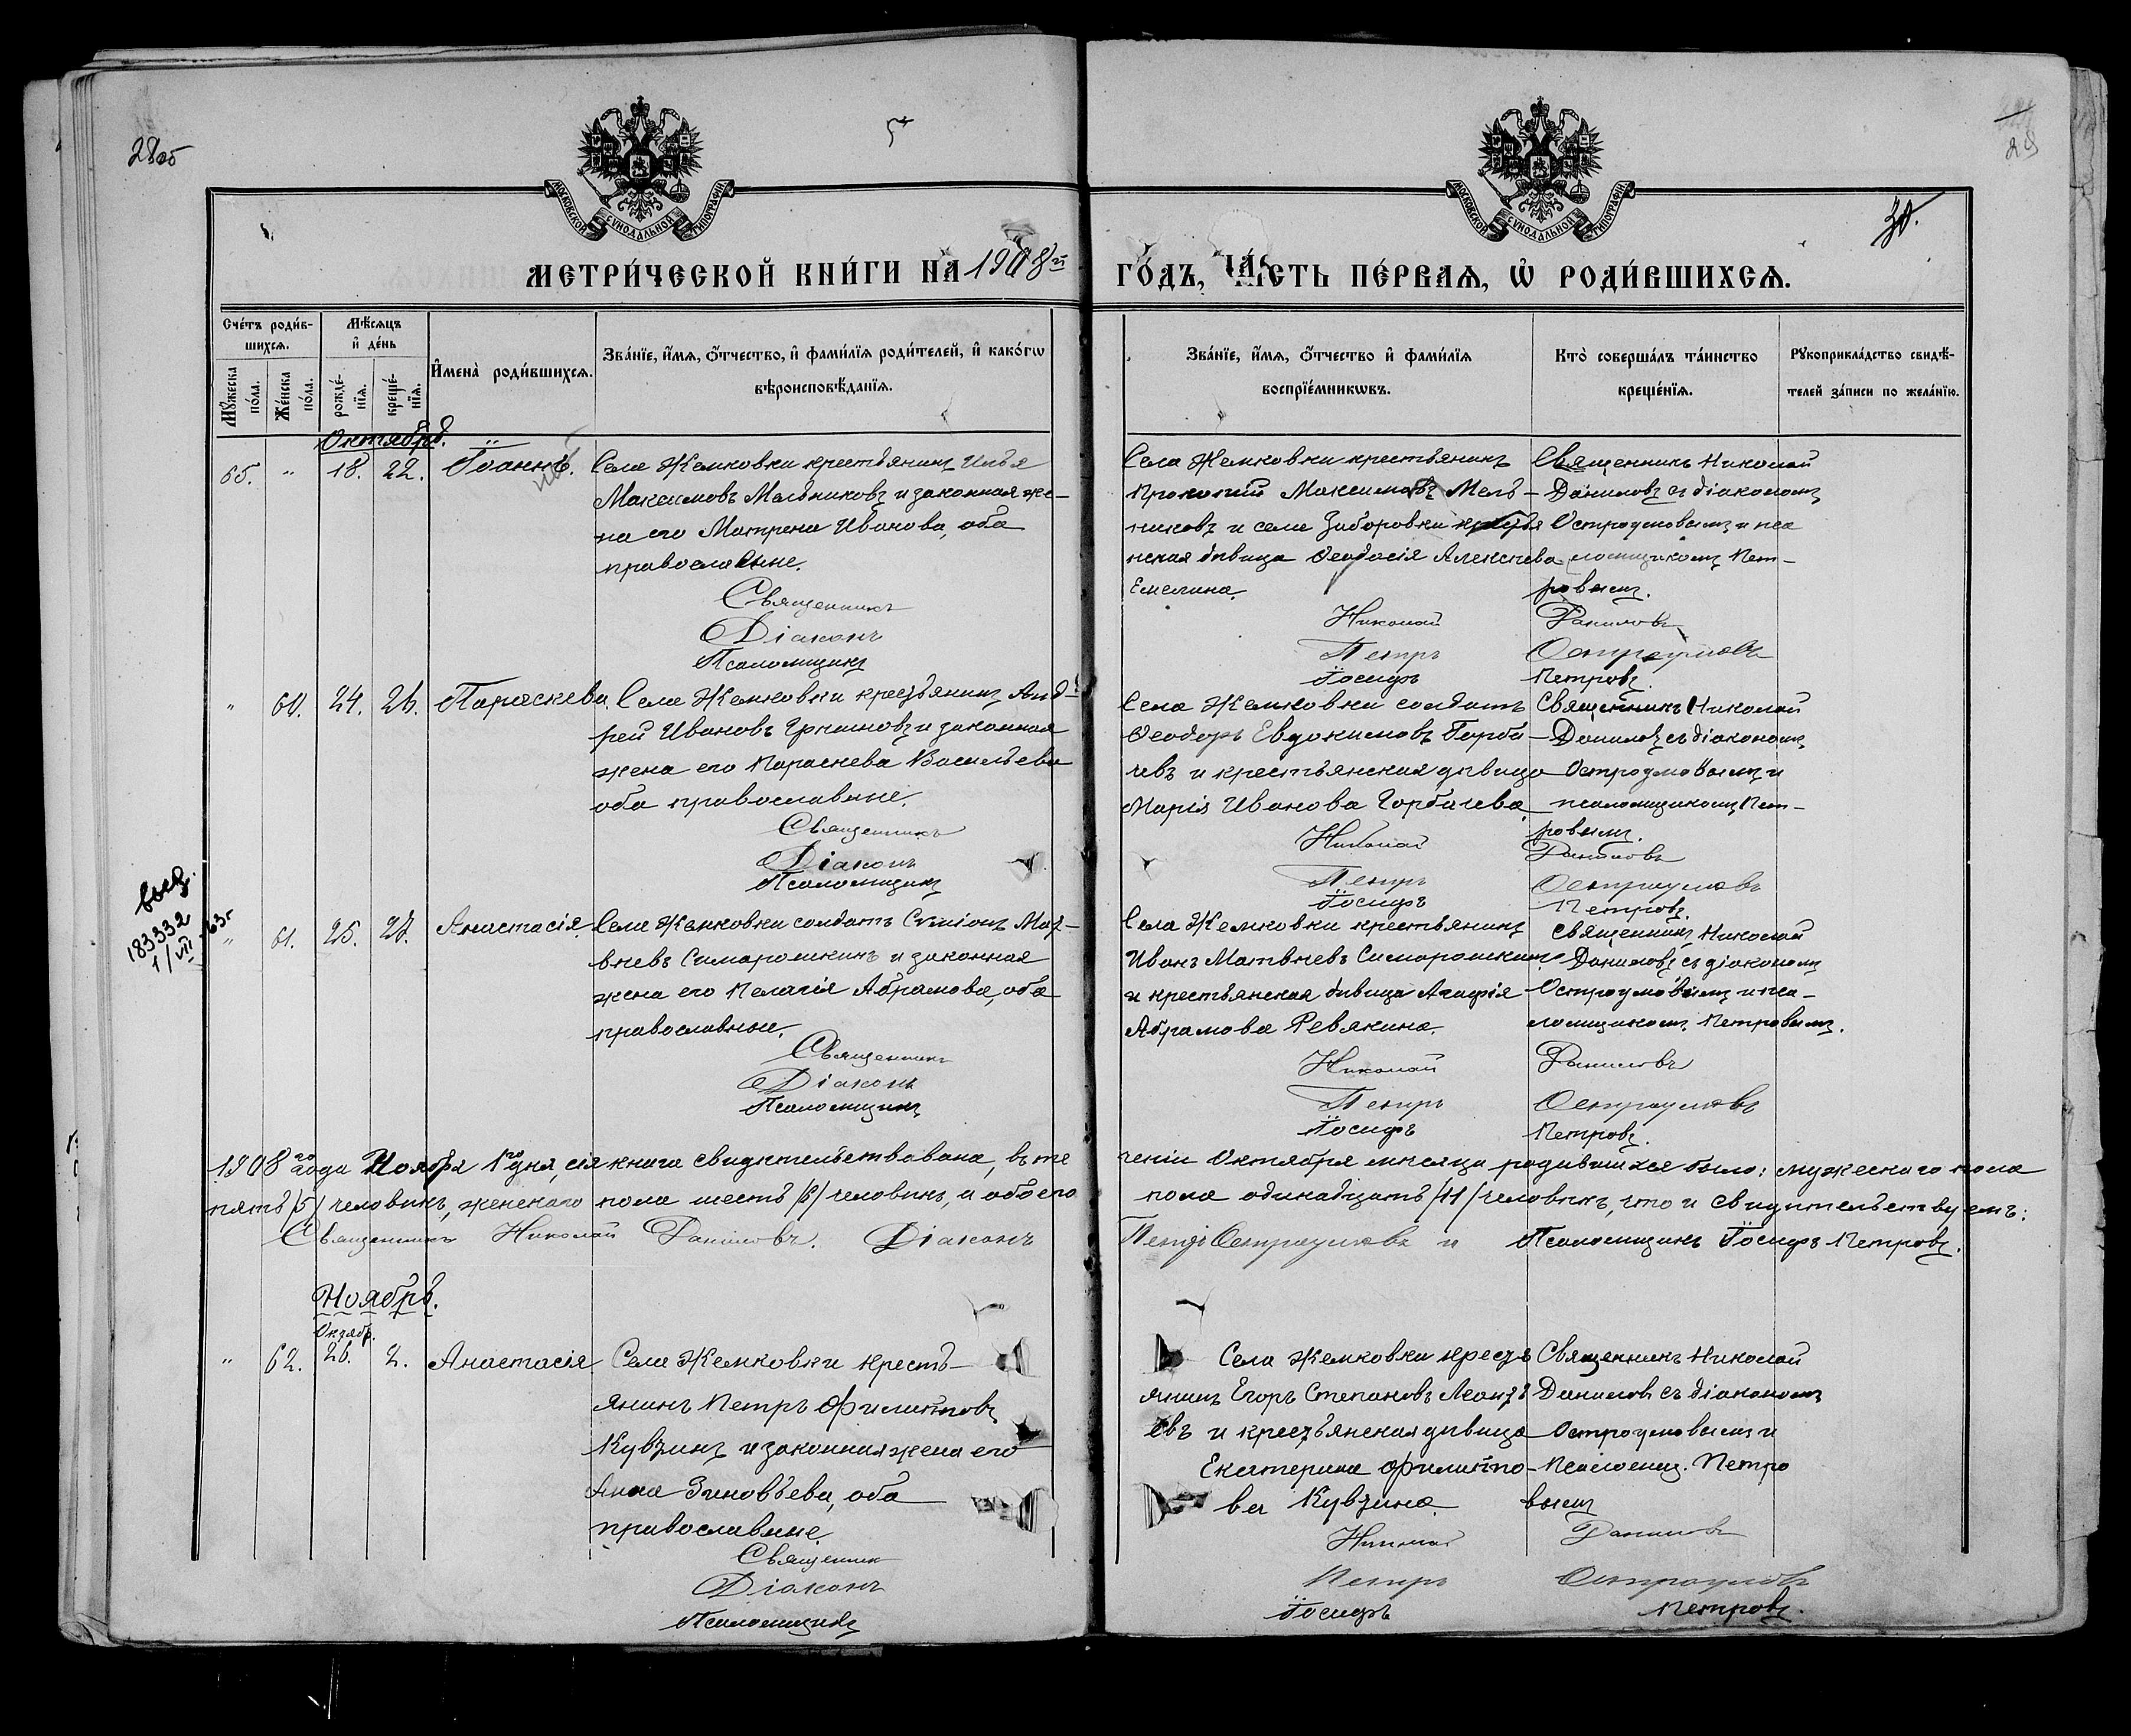 28об
5
29
30.
МОСКОВСКОЙ СѴНОДАЛЬНОЙ ТИПОГРАФІИ
МОСКОВСКОЙ СѴНОДАЛЬНОЙ ТИПОГРАФІИ
МЕТРИ́ЧЕСКОЙ КНИ́ГИ НА 1908й
ГО́ДЪ, ЧА́СТЬ ПЕ́РВАѦ, Ѡ҆ РОДИ́ВШИХСѦ.
Сче́тъ роди́в-
шихсѧ.
Мѣ́сѧцъ
и҆ де́нь
Мꙋ́жеска
по́ла.
Же́нска
по́ла.
рожде́-
нїѧ.
креще́-
нїѧ.
И҆мена̀ роди́вшихсѧ.
Зва́нїе, и҆́мѧ, ѻ҆́тчество, и҆ фами́лїѧ роди́телей, и҆ како́гѡ
вѣроисповѣ́данїѧ.
Зва́нїе, и҆́мѧ, ѻ҆́тчество и҆ фами́лїѧ
воспрїе́мникѡвъ.
Кто̀ соверша́лъ та́инство
креще́нїѧ.
Рꙋкоприкла́дство свидѣ́-
телей за́писи по жела́нїю.
Октябрь.
65. " 18. 22. Іоаннъ.
Села Жемковки крестьянинъ Илья
Максимовъ Мельниковъ и законная же-
на его Матрена Иванова, оба
православные.
Священникъ
Діаконъ
Псаломщикъ
Села Жемковки крестьянинъ
Прокопій Максимовъ Мель-
никовъ и села Заборовки крестья
нская дѣвица Ѳеодосія Алексѣева
Емелина.
Николай
Петръ
Іосифъ
Священникъ Николай
Даниловъ съ діакономъ
Остроумовымъ и пса
ломщикомъ Пет-
ровымъ.
Даниловъ
Остроумовъ
Петровъ.
" 60. 24. 26. Параскева
Села Жемковки крестьянинъ Анд-
рей Ивановъ и законная
жена его Параскева Васильева
оба православные.
Священникъ
Діаконъ
Псаломщикъ
Села Жемковки солдатъ
Ѳеодоръ Евдокимовъ Горба-
чевъ и крестьянская дѣвица
Марія Иванова Горбачева
Николай
Петръ
Іосифъ
Священникъ Николай
Даниловъ съ діакономъ
Остроумовымъ и
псаломщикомъ Пет-
ровымъ.
Даниловъ
Остроумовъ
Петровъ.
183332
1/VIII-63г
" 61. 25. 27. Анастасія
Села Жемковки солдатъ Сѵмеонъ Мат-
вѣевъ Симарошкинъ и законная
жена его Пелагія Абрамова, оба
православные.
Священникъ
Діаконъ
Псаломщикъ
Села Жемковки крестьянинъ
Иванъ Матвѣевъ Симарошкинъ
и крестьянская дѣвица Агафія
Абрамова Ревякина.
Николай
Петръ
Іосифъ
Священникъ Николай
Даниловъ съ діакономъ
Остроумовымъ и пса-
ломщикомъ Петровымъ.
Даниловъ
Остроумовъ
Петровъ.
1908го года Ноября 1го дня, сія книга свидѣтельствована, въ те
ченіи Октября мѣсяца родившихся было: мужескаго пола
пять /5/ человѣкъ, женскаго пола шесть /6/ человѣкъ, и обоего
пола одинадцать /11/ человѣкъ, что и свидѣтельствуемъ:
Священникъ Николай Даниловъ. Діаконъ
Петръ Остроумовъ и Псаломщикъ Іосифъ Петровъ.
Ноябрь.
Октябр.
" 62. 26. 2. Анастасія
Села Жемковки кресть-
янинъ Петръ Филипповъ
Кувзинъ и законная жена его
Анна Зиновьева, оба
православные
Священник
Діаконъ
Псаломщикъ
Села Жемковки кресть
янинъ Егоръ Степановъ
евъ и крестьянская дѣвица
Екатерина Филиппо-
ва Кувзина.
Николай
Петръ
Іосифъ
Священникъ Николай
Даниловъ съ діакономъ
Остроумовымъ и
Псаломщ. Петро
вымъ
Даниловъ
Остроумовъ
Петровъ.